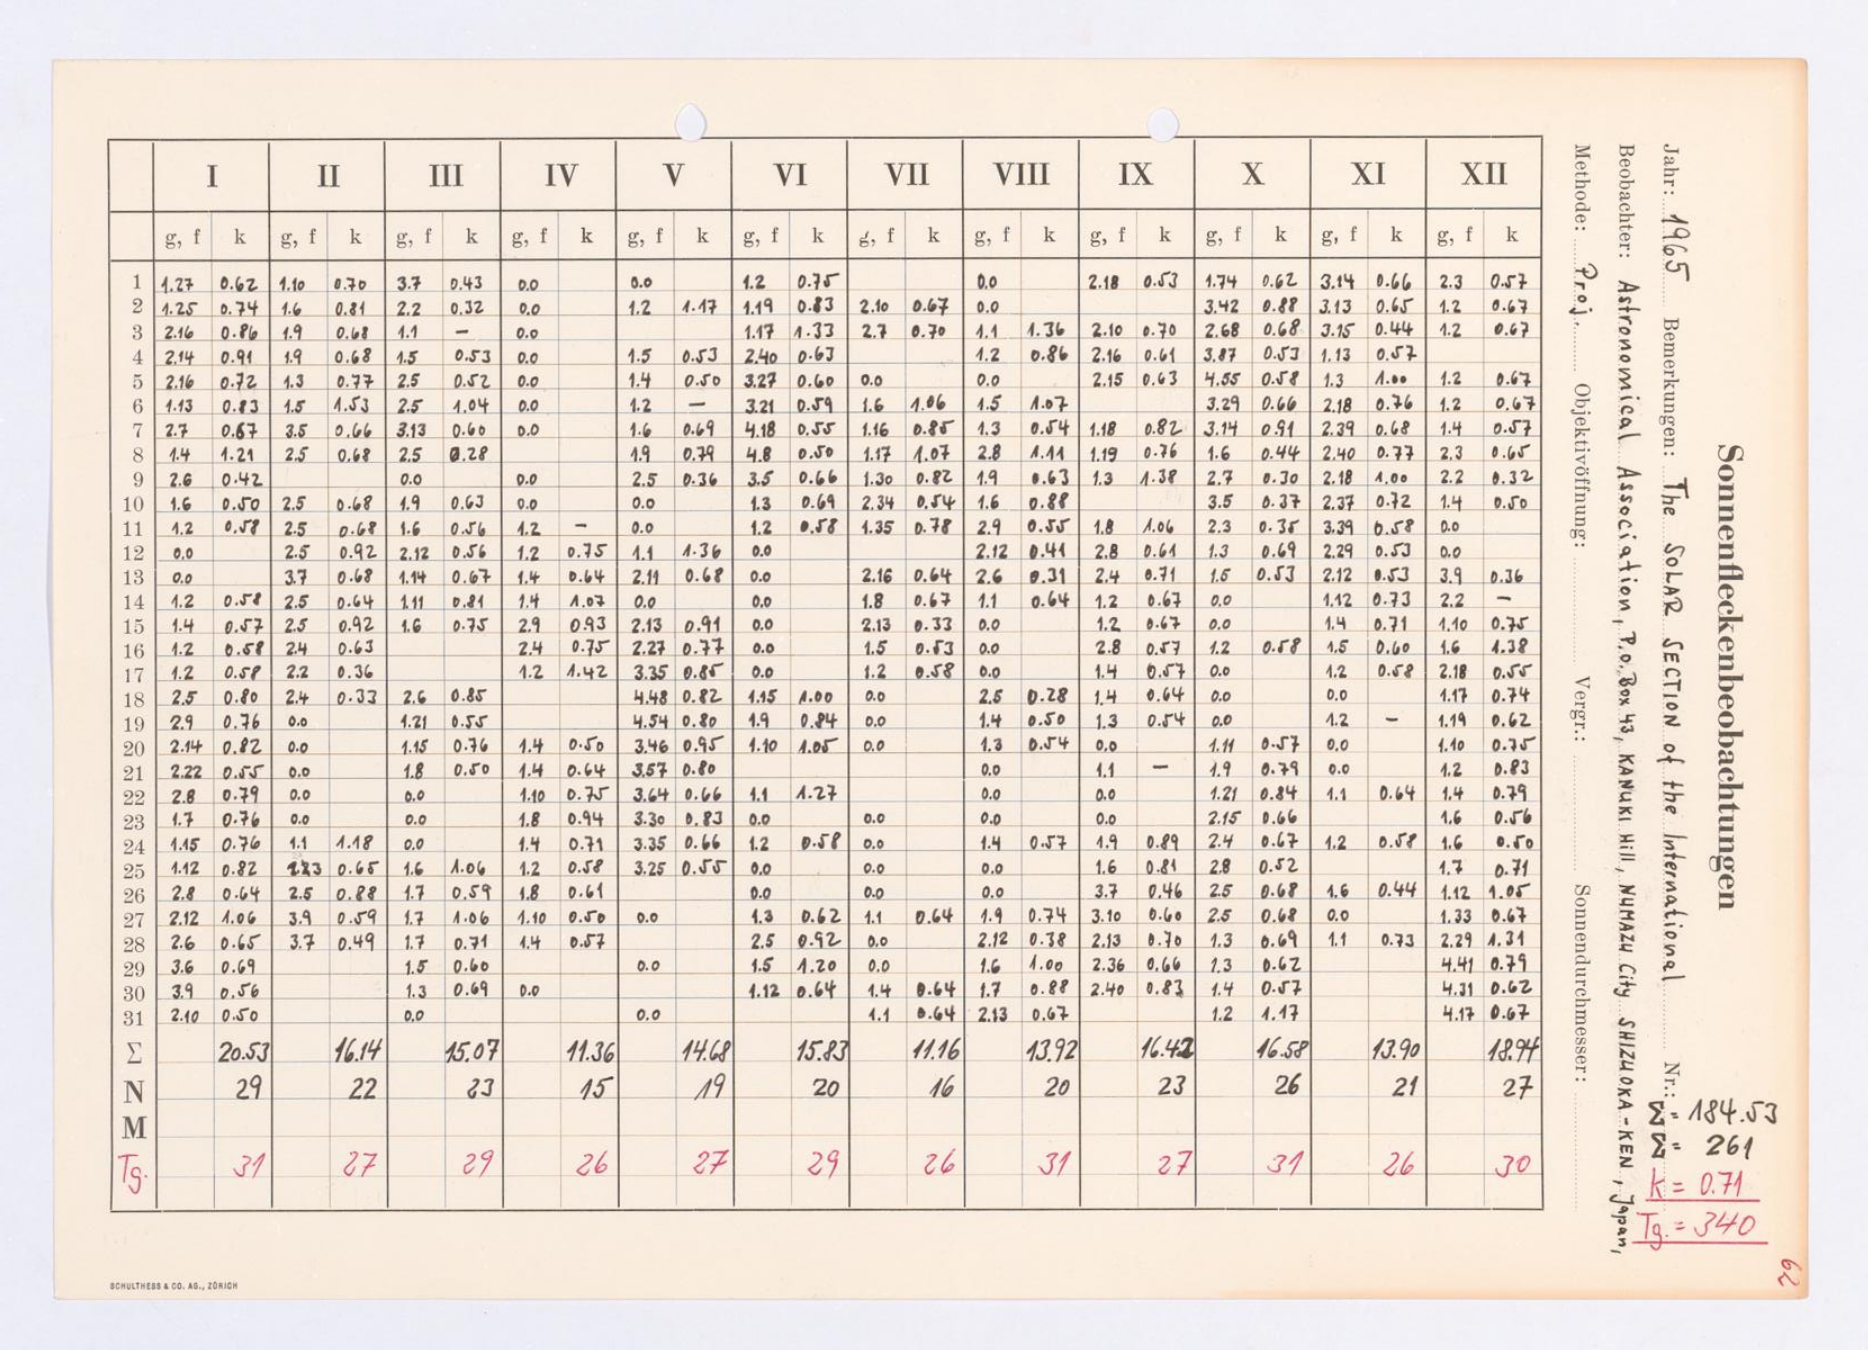 Sonnenfleckenbeobachtungen
Jahr: 1965 Bemerkungen: The SOLAR SECTION of the International Nr.:
Beobachter: Astronomical Association, P.O. Box 43, KANUKI Hill, NUMAZU City SHIZUOKA-KEN, Japan,
Methode: Proj. Objektivöffnung: Vergr.: Sonnendurchmesser:
I II III IV V VI VII VIII IX X XI XII
g, f k g, f k g, f k g, f k g, f k g, f k g, f k g, f k g, f k g, f k g, f k g, f k
1 1.27 0.62 1.10 0.70 3.7 0.43 0.0 0.0 1.2 0.75 0.0 2.18 0.53 1.74 0.62 3.14 0.66 2.3 0.57
2 1.25 0.74 1.6 0.81 2.2 0.32 0.0 1.2 1.17 1.19 0.83 2.10 0.67 0.0 3.42 0.88 3.13 0.65 1.2 0.67
3 2.16 0.86 1.9 0.68 1.1 – 0.0 1.17 1.33 2.7 0.70 1.1 1.36 2.10 0.70 2.68 0.68 3.15 0.44 1.2 0.67
4 2.14 0.91 1.9 0.68 1.5 0.53 0.0 1.5 0.53 2.40 0.63 1.2 0.86 2.16 0.61 3.87 0.53 1.13 0.57
5 2.16 0.72 1.3 0.77 2.5 0.52 0.0 1.4 0.50 3.27 0.60 0.0 0.0 2.15 0.63 4.55 0.58 1.3 1.00 1.2 0.67
6 1.13 0.83 1.5 1.53 2.5 1.04 0.0 1.2 – 3.21 0.59 1.6 1.06 1.5 1.07 3.29 0.66 2.18 0.76 1.2 0.67
7 2.7 0.67 3.5 0.66 3.13 0.60 0.0 1.6 0.69 4.18 0.55 1.16 0.85 1.3 0.54 1.18 0.82 3.14 0.91 2.39 0.68 1.4 0.57
8 1.4 1.21 2.5 0.68 2.5 0.28 1.9 0.79 4.8 0.50 1.17 1.07 2.8 1.11 1.19 0.76 1.6 0.44 2.40 0.77 2.3 0.65
9 2.6 0.42 0.0 0.0 2.5 0.36 3.5 0.66 1.30 0.82 1.9 0.63 1.3 1.38 2.7 0.30 2.18 1.00 2.2 0.32
10 1.6 0.50 2.5 0.68 1.9 0.63 0.0 0.0 1.3 0.69 2.34 0.54 1.6 0.88 3.5 0.37 2.37 0.72 1.4 0.50
11 1.2 0.58 2.5 0.68 1.6 0.56 1.2 – 0.0 1.2 0.58 1.35 0.78 2.9 0.55 1.8 1.06 2.3 0.35 3.39 0.58 0.0
12 0.0 2.5 0.92 2.12 0.56 1.2 0.75 1.1 1.36 0.0 2.12 0.41 2.8 0.61 1.3 0.69 2.29 0.53 0.0
13 0.0 3.7 0.68 1.14 0.67 1.4 0.64 2.11 0.68 0.0 2.16 0.64 2.6 0.31 2.4 0.71 1.5 0.53 2.12 0.53 3.9 0.36
14 1.2 0.58 2.5 0.64 1.11 0.81 1.4 1.07 0.0 0.0 1.8 0.67 1.1 0.64 1.2 0.67 0.0 1.12 0.73 2.2 –
15 1.4 0.57 2.5 0.92 1.6 0.75 2.9 0.93 2.13 0.91 0.0 2.13 0.33 0.0 1.2 0.67 0.0 1.4 0.71 1.10 0.75
16 1.2 0.58 2.4 0.63 2.4 0.75 2.27 0.77 0.0 1.5 0.53 0.0 2.8 0.57 1.2 0.58 1.5 0.60 1.6 1.38
17 1.2 0.58 2.2 0.36 1.2 1.42 3.35 0.85 0.0 1.2 0.58 0.0 1.4 0.57 0.0 1.2 0.58 2.18 0.55
18 2.5 0.80 2.4 0.33 2.6 0.85 4.48 0.82 1.15 1.00 0.0 2.5 0.28 1.4 0.64 0.0 0.0 1.17 0.74
19 2.9 0.76 0.0 1.21 0.55 4.54 0.80 1.9 0.84 0.0 1.4 0.50 1.3 0.54 0.0 1.2 – 1.19 0.62
20 2.14 0.82 0.0 1.15 0.76 1.4 0.50 3.46 0.95 1.10 1.05 0.0 1.3 0.54 0.0 1.11 0.57 0.0 1.10 0.75
21 2.22 0.55 0.0 1.8 0.50 1.4 0.64 3.57 0.80 0.0 1.1 – 1.9 0.79 0.0 1.2 0.83
22 2.8 0.79 0.0 0.0 1.10 0.75 3.64 0.66 1.1 1.27 0.0 0.0 1.21 0.84 1.1 0.64 1.4 0.79
23 1.7 0.76 0.0 0.0 1.8 0.94 3.30 0.83 0.0 0.0 0.0 0.0 2.15 0.66 1.6 0.56
24 1.15 0.76 1.1 1.18 0.0 1.4 0.71 3.35 0.66 1.2 0.58 0.0 1.4 0.57 1.9 0.89 2.4 0.67 1.2 0.58 1.6 0.50
25 1.12 0.82 0.65 1.6 1.06 1.2 0.58 3.25 0.55 0.0 0.0 0.0 1.6 0.81 2.8 0.52 1.7 0.71
26 2.8 0.64 2.5 0.88 1.7 0.59 1.8 0.61 0.0 0.0 0.0 3.7 0.46 2.5 0.68 1.6 0.44 1.12 1.05
27 2.12 1.06 3.9 0.59 1.7 1.06 1.10 0.50 0.0 1.3 0.62 1.1 0.64 1.9 0.74 3.10 0.60 2.5 0.68 0.0 1.33 0.67
28 2.6 0.65 3.7 0.49 1.7 0.71 1.4 0.57 2.5 0.92 0.0 2.12 0.38 2.13 0.70 1.3 0.69 1.1 0.73 2.29 1.31
29 3.6 0.69 1.5 0.60 0.0 1.5 1.20 0.0 1.6 1.00 2.36 0.66 1.3 0.62 4.41 0.79
30 3.9 0.56 1.3 0.69 0.0 1.12 0.64 1.4 0.64 1.7 0.88 2.40 0.83 1.4 0.57 4.31 0.62
31 2.10 0.50 0.0 0.0 1.1 0.64 2.13 0.67 1.2 1.17 4.17 0.67
Σ 20.53 16.14 15.07 11.36 14.68 15.83 11.16 13.92 16.42 16.58 13.90 18.94
N 29 22 23 15 19 20 16 20 23 26 21 27
M
Tg. 31 27 29 26 27 29 26 31 27 31 26 30
Σ = 184.53
Σ = 261
k = 0.71
Tg. = 340
62
SCHULTHESS & CO. AG., ZÜRICH